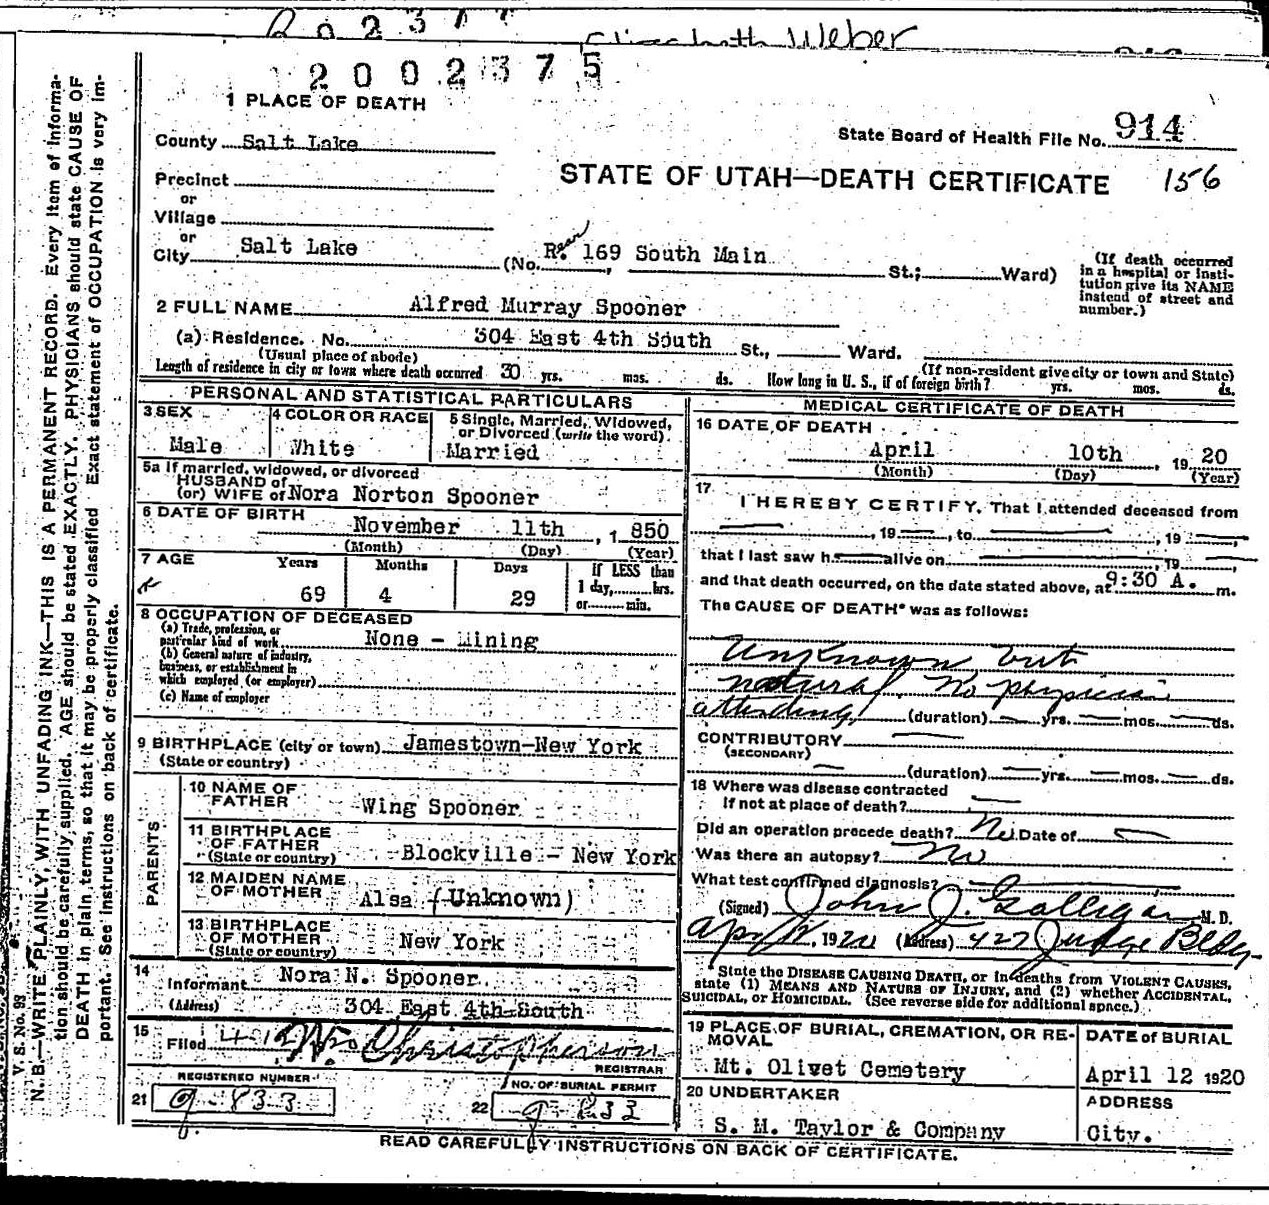 Elizabeth Weber
2002375
1 PLACE OF DEATH
State Board of Health File No. 914
County Salt Lake
STATE OF UTAH—DEATH CERTIFICATE 156
Precinct
or
Village
or
City Salt Lake (No. Rear 169 South Main St.; Ward)
(If death occurred in a hospital or insti-
tution give its NAME instead of street and number.)
2 FULL NAME Alfred Murray Spooner
(a) Residence. No. 304 East 4th South St., Ward.
(Usual place of abode) (If non-resident give city or town and State)
Length of residence in city or town where death occurred 30 yrs. mos. ds. How long in U. S., if of foreign birth? yrs. mos. ds.
PERSONAL AND STATISTICAL PARTICULARS
3 SEX Male
4 COLOR OR RACE White
5 Single, Married, Widowed, or Divorced (write the word) Married
5a If married, widowed, or divorced
HUSBAND of
(or) WIFE of Nora Norton Spooner
6 DATE OF BIRTH November 11th, 1850
(Month) (Day) (Year)
7 AGE Years Months Days If LESS than
69 4 29 1 day, hrs.
or min.
8 OCCUPATION OF DECEASED
(a) Trade, profession, or
particular kind of work None - Mining
(b) General nature of industry,
business, or establishment in
which employed (or employer)
(c) Name of employer
9 BIRTHPLACE (city or town) Jamestown-New York
(State or country)
PARENTS
10 NAME OF FATHER Wing Spooner
11 BIRTHPLACE OF FATHER (State or country) Blockville - New York
12 MAIDEN NAME OF MOTHER Alsa (Unknown)
13 BIRTHPLACE OF MOTHER (State or country) New York
14 Informant Nora N. Spooner
(Address) 304 East 4th South
15 Filed Wm Christopherson
REGISTRAR
REGISTERED NUMBER
21 9-833
NO. OF BURIAL PERMIT
22 9-833
MEDICAL CERTIFICATE OF DEATH
16 DATE OF DEATH
April 10th, 1920
(Month) (Day) (Year)
17 I HEREBY CERTIFY, That I attended deceased from
, 19 , to , 19 ,
that I last saw h alive on , 19
and that death occurred, on the date stated above, at 9:30 A. m.
The CAUSE OF DEATH* was as follows:
Unknown but
natural. No physician
attending (duration) yrs. mos. ds.
CONTRIBUTORY
(SECONDARY)
(duration) yrs. mos. ds.
18 Where was disease contracted
If not at place of death?
Did an operation precede death? No Date of
Was there an autopsy? No
What test confirmed diagnosis?
(Signed) John J. Galligan M. D.
Apr 12, 1920 (Address) 427 Judge Bldg
*State the DISEASE CAUSING DEATH, or in deaths from VIOLENT CAUSES,
state (1) MEANS AND NATURE OF INJURY, and (2) whether ACCIDENTAL,
SUICIDAL, or HOMICIDAL. (See reverse side for additional space.)
19 PLACE OF BURIAL, CREMATION, OR RE-
MOVAL
Mt. Olivet Cemetery
DATE of BURIAL
April 12 1920
20 UNDERTAKER
S. M. Taylor & Company
ADDRESS
City.
READ CAREFULLY INSTRUCTIONS ON BACK OF CERTIFICATE.
V. S. No. 93
N. B.—WRITE PLAINLY, WITH UNFADING INK—THIS IS A PERMANENT RECORD. Every item of informa-
tion should be carefully supplied. AGE should be stated EXACTLY. PHYSICIANS should state CAUSE OF
DEATH in plain terms, so that it may be properly classified. Exact statement of OCCUPATION is very im-
portant. See instructions on back of certificate.